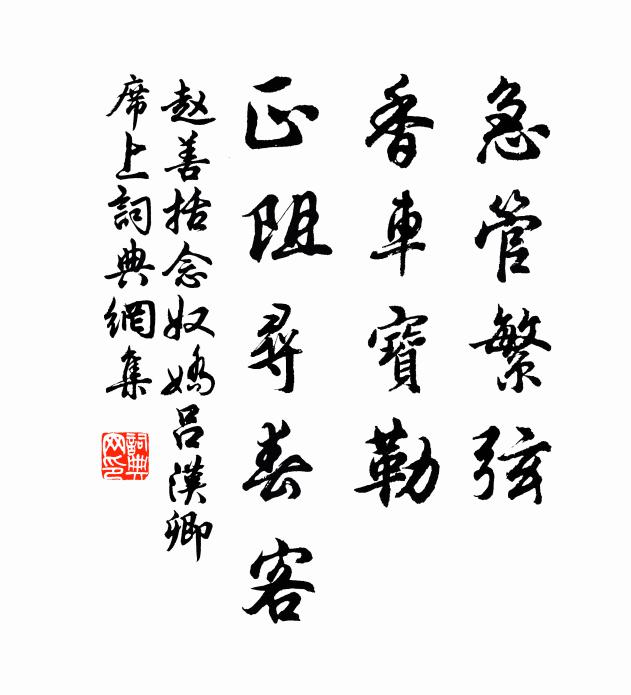 急管繁弦
香車寶勒
正阻尋春客
赵善括念奴嬌吕漢卿
席上詞典網集
詞典網印